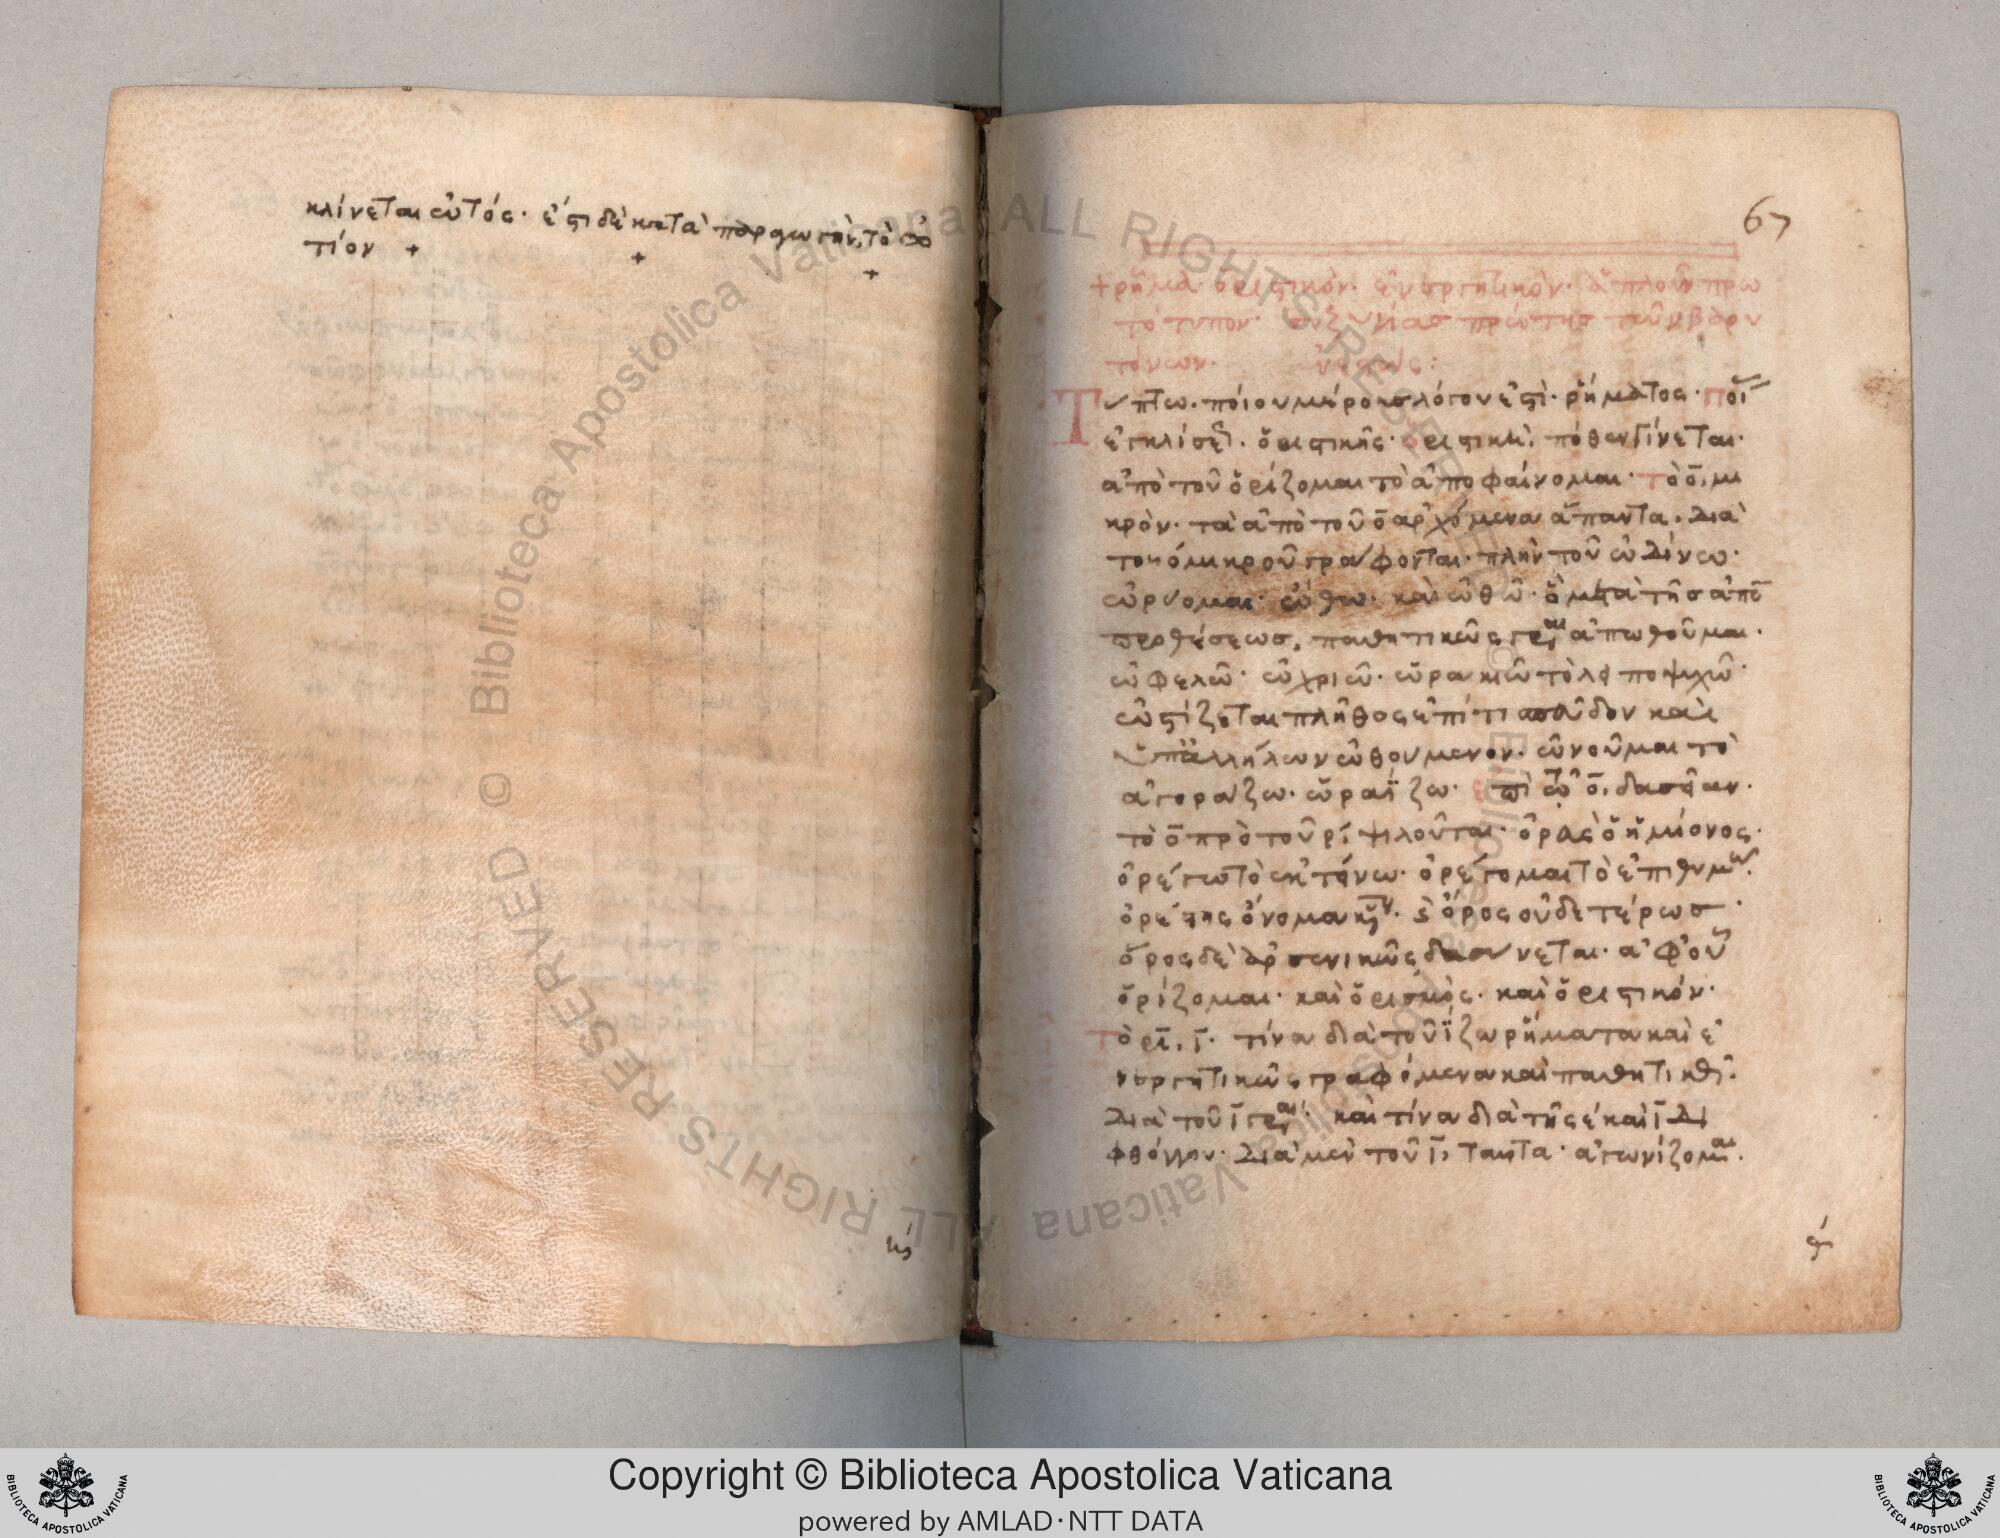 κλίνεται οὗτός· ἐστι δὲ κατὰ παραγωγὴν, τὸ
τίον + + +
67
+ ῥῆμα ὁριστικὸν· ἐνεργητικὸν· ἁπλοῦν πρω
τότυπον· συζυγίας πρώτης τῶν βαρυ
τόνων·
Τύπτω· ποίου μέρους λόγου ἐστὶ· ῥήματος·
ἐγκλίσε· ὁριστικῆς· ὁριστικὴ, πόθεν γίνεται·
ἀπὸ τοῦ ὁρίζομαι τὸ ἀποφαίνομαι· τὸ ο̄, μι
κρὸν· τὰ ἀπὸ τοῦ ο̄ ἀρχόμενα ἅπαντα, διὰ
τοῦ ὀμικροῦ γράφονται· πλὴν τοῦ ὠδίνω·
ὠρύομαι· ὤθω· καὶ ὠθῶ· ὃ μετὰ τῆς ἀπὸ
προθέσεως, παθητικῶς γρ ἀπωθοῦμαι·
ὠφελῶ· ὠχριῶ· ὠρακιῶ τὸ λιποψυχῶ·
ὠστίζεται πλῆθος ἐπί τι εἰσοδον καὶ
ὑπ' ἀλλήλων ὠθουμενον· ὠνοῦμαι τὸ
ἀγοράζω· ὡραΐζω· ο̄, δασεῖαν·
τὸ ο̄ πρὸ τοῦ ρ, ψιλοῦται· ὀρεὺς ὁ ἡμίονος·
ὀρέγω τὸ ἐκτείνω· ὀρέγομαι τὸ ἐπιθυμῶ·
ὀρέστης ὄνομα κύριον· ὄρος οὐδετέρως·
ὅρος δὲ ἀρσενικῶς δασύνεται· ἀφ' οὗ
ὁρίζομαι· καὶ ὁρισμὸς· καὶ ὁριστικόν·
τὸ ρι, ι· τίνα διὰ τοῦ ΐζω ῥήματα καὶ ἐ
νεργητικῶς γραφόμενα καὶ παθητικῶς·
διὰ τοῦ ι γρ· καὶ τίνα διὰ τῆς ε καὶ ι δι
φθόγγου· διὰ μὲν τοῦ ι, ταῦτα· ἀγωνίζομαι·
Copyright © Biblioteca Apostolica Vaticana
powered by AMLAD·NTT DATA
BIBLIOTECA APOSTOLICA VATICANA
BIBLIOTECA APOSTOLICA VATICANA
© Biblioteca Apostolica Vaticana ALL RIGHTS RESERVED © Biblioteca Apostolica Vaticana ALL RIGHTS RESERVED